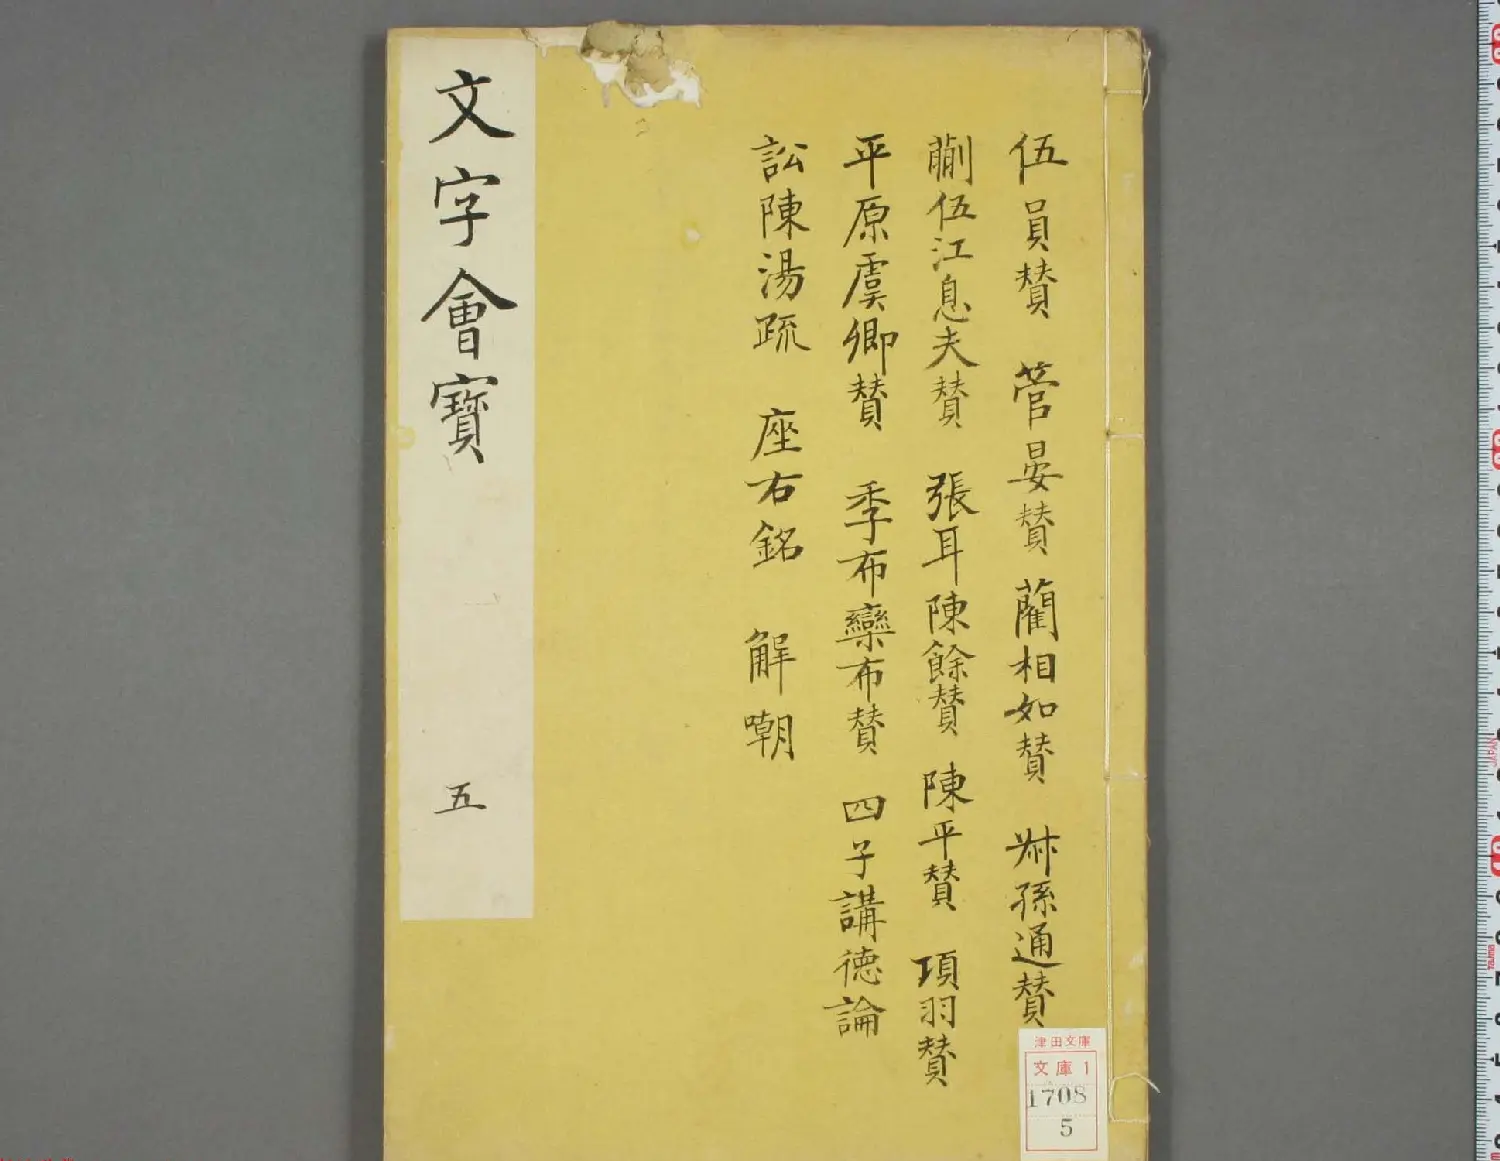 伍員賛　管晏賛　藺相如賛　叔孫通賛
蒯伍江息夫賛　張耳陳餘賛　陳平賛　項羽賛
平原虞卿賛　季布欒布賛　四子講德論
訟陳湯疏　座右銘　解嘲
文字會寶　五
津田文庫
文庫1
1708
5